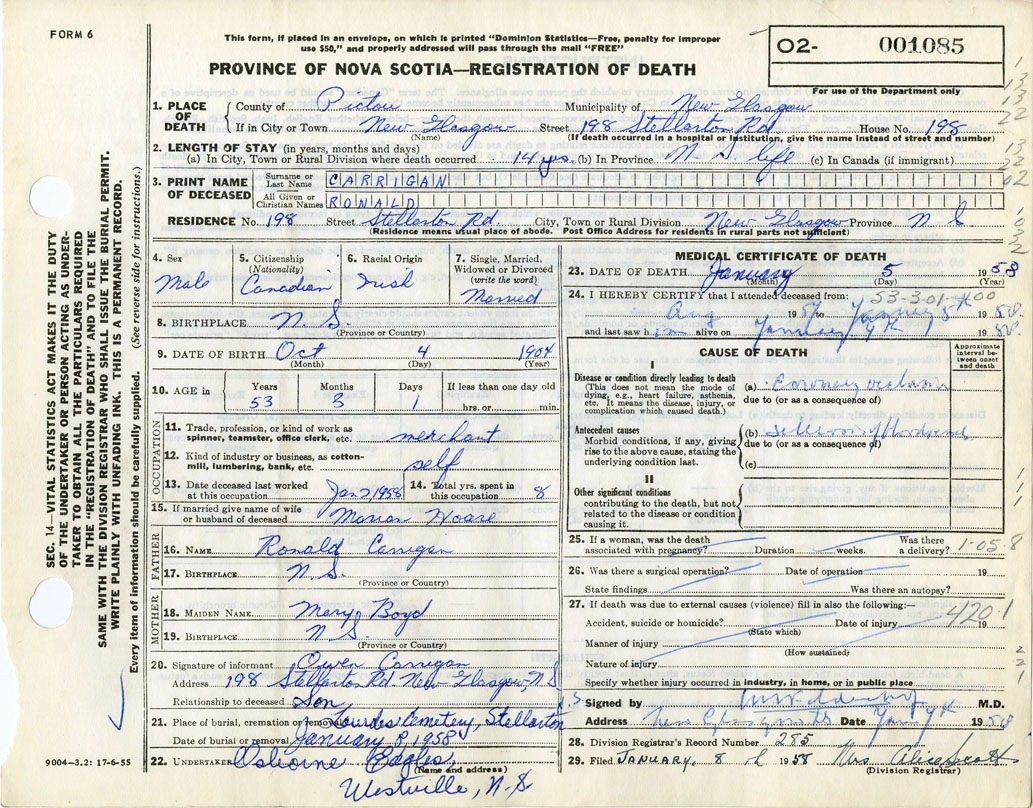 FORM 6
This form, if placed in an envelope, on which is printed "Dominion Statistics—Free, penalty for improper
use $50," and properly addressed will pass through the mail "FREE"
PROVINCE OF NOVA SCOTIA—REGISTRATION OF DEATH
O2- 001085
For use of the Department only
1. PLACE OF DEATH County of Pictou Municipality of New Glasgow
If in City or Town New Glasgow Street 198 Stellarton Rd House No. 198
(Name) (If death occurred in a hospital or institution, give the name instead of street and number)
2. LENGTH OF STAY (in years, months and days)
(a) In City, Town or Rural Division where death occurred 14 yrs. (b) In Province N.S. life (c) In Canada (if immigrant)
3. PRINT NAME OF DECEASED Surname or Last Name CARRIGAN
All Given or Christian Names RONALD
RESIDENCE No. 198 Street Stellarton Rd. City, Town or Rural Division New Glasgow Province N S
(Residence means usual place of abode. Post Office Address for residents in rural parts not sufficient)
4. Sex Male
5. Citizenship (Nationality) Canadian
6. Racial Origin Irish
7. Single, Married, Widowed or Divorced (write the word) Married
8. BIRTHPLACE N.S.
(Province or Country)
9. DATE OF BIRTH Oct 4 1904
(Month) (Day) (Year)
10. AGE in Years 53 Months 3 Days 1 If less than one day old hrs. or min.
OCCUPATION
11. Trade, profession, or kind of work as spinner, teamster, office clerk, etc. merchant
12. Kind of industry or business, as cotton-mill, lumbering, bank, etc. self
13. Date deceased last worked at this occupation Jan 2 1958 14. Total yrs. spent in this occupation 8
15. If married give name of wife or husband of deceased Marion Hoare
FATHER
16. NAME Ronald Carrigan
17. BIRTHPLACE N.S.
(Province or Country)
MOTHER
18. MAIDEN NAME Mary Boyd
19. BIRTHPLACE N S.
(Province or Country)
20. Signature of informant Owen Carrigan
Address 198 Stellarton Rd. New Glasgow, N.S.
Relationship to deceased Son
21. Place of burial, cremation or removal Lourdes Cemetery, Stellarton N.S.
Date of burial or removal January 8, 1958
22. UNDERTAKER Osborne Eagles,
(Name and address)
Westville, N.S.
9004—3.2: 17-6-55
MEDICAL CERTIFICATE OF DEATH
23. DATE OF DEATH January 5 1958
(Month) (Day) (Year)
24. I HEREBY CERTIFY that I attended deceased from: 53-3-01-400
Aug 1957 to January 5th 1958.
and last saw him alive on January 4th 1958.
CAUSE OF DEATH
Approximate interval between onset and death
I
Disease or condition directly leading to death
(This does not mean the mode of dying, e.g., heart failure, asthenia, etc. It means the disease, injury, or complication which caused death.)
(a) Coronary occlusion
due to (or as a consequence of)
Antecedent causes
Morbid conditions, if any, giving rise to the above cause, stating the underlying condition last.
(b)
due to (or as a consequence of)
(c)
II
Other significant conditions
contributing to the death, but not related to the disease or condition causing it.
25. If a woman, was the death associated with pregnancy? Duration weeks. Was there a delivery? 1-05-8
26. Was there a surgical operation? Date of operation 19
State findings Was there an autopsy?
27. If death was due to external causes (violence) fill in also the following:—
420.1
Accident, suicide or homicide? Date of injury 19
(State which)
Manner of injury
(How sustained)
Nature of injury
Specify whether injury occurred in industry, in home, or in public place
Signed by M.D.
Address New Glasgow N.S. Date Jan 7th 1958
28. Division Registrar's Record Number 285
29. Filed JANUARY, 8 th 1958 Mrs Alice Scott
(Division Registrar)
SEC. 14—VITAL STATISTICS ACT MAKES IT THE DUTY
OF THE UNDERTAKER OR PERSON ACTING AS UNDER-
TAKER TO OBTAIN ALL THE PARTICULARS REQUIRED
IN THE "REGISTRATION OF DEATH" AND TO FILE THE
SAME WITH THE DIVISION REGISTRAR WHO SHALL ISSUE THE BURIAL PERMIT.
WRITE PLAINLY WITH UNFADING INK. THIS IS A PERMANENT RECORD.
Every item of information should be carefully supplied. (See reverse side for instructions.)